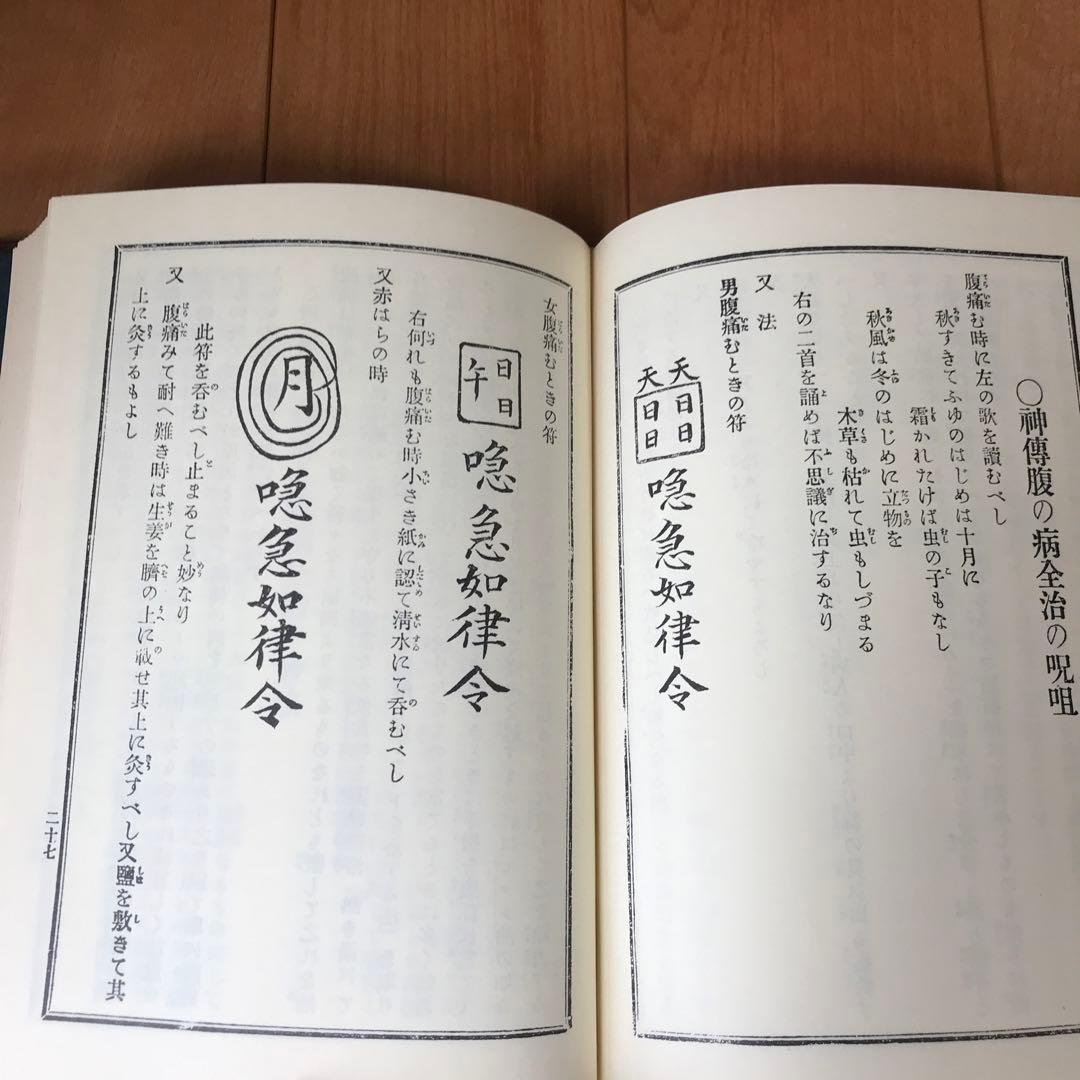 ○神傳腹の病全治の呪咀
腹痛む時に左の歌を讀むべし
秋すきてふゆのはじめは十月に
霜かれたけば虫の子もなし
秋風は冬のはじめに立物を
木草も枯れて虫もしづまる
右の二首を誦めば不思議に治するなり
又法
男腹痛むときの符
天天
日日
日日
喼急如律令
女腹痛むときの符
日午
日
喼急如律令
右何れも腹痛む時小さき紙に認て清水にて呑むべし
又赤はらの時
月
喼急如律令
此符を呑むべし止まること妙なり
又
腹痛みて耐へ難き時は生姜を臍の上に戦せ其上に灸すべし又鹽を敷きて其
上に灸するもよし
二十七